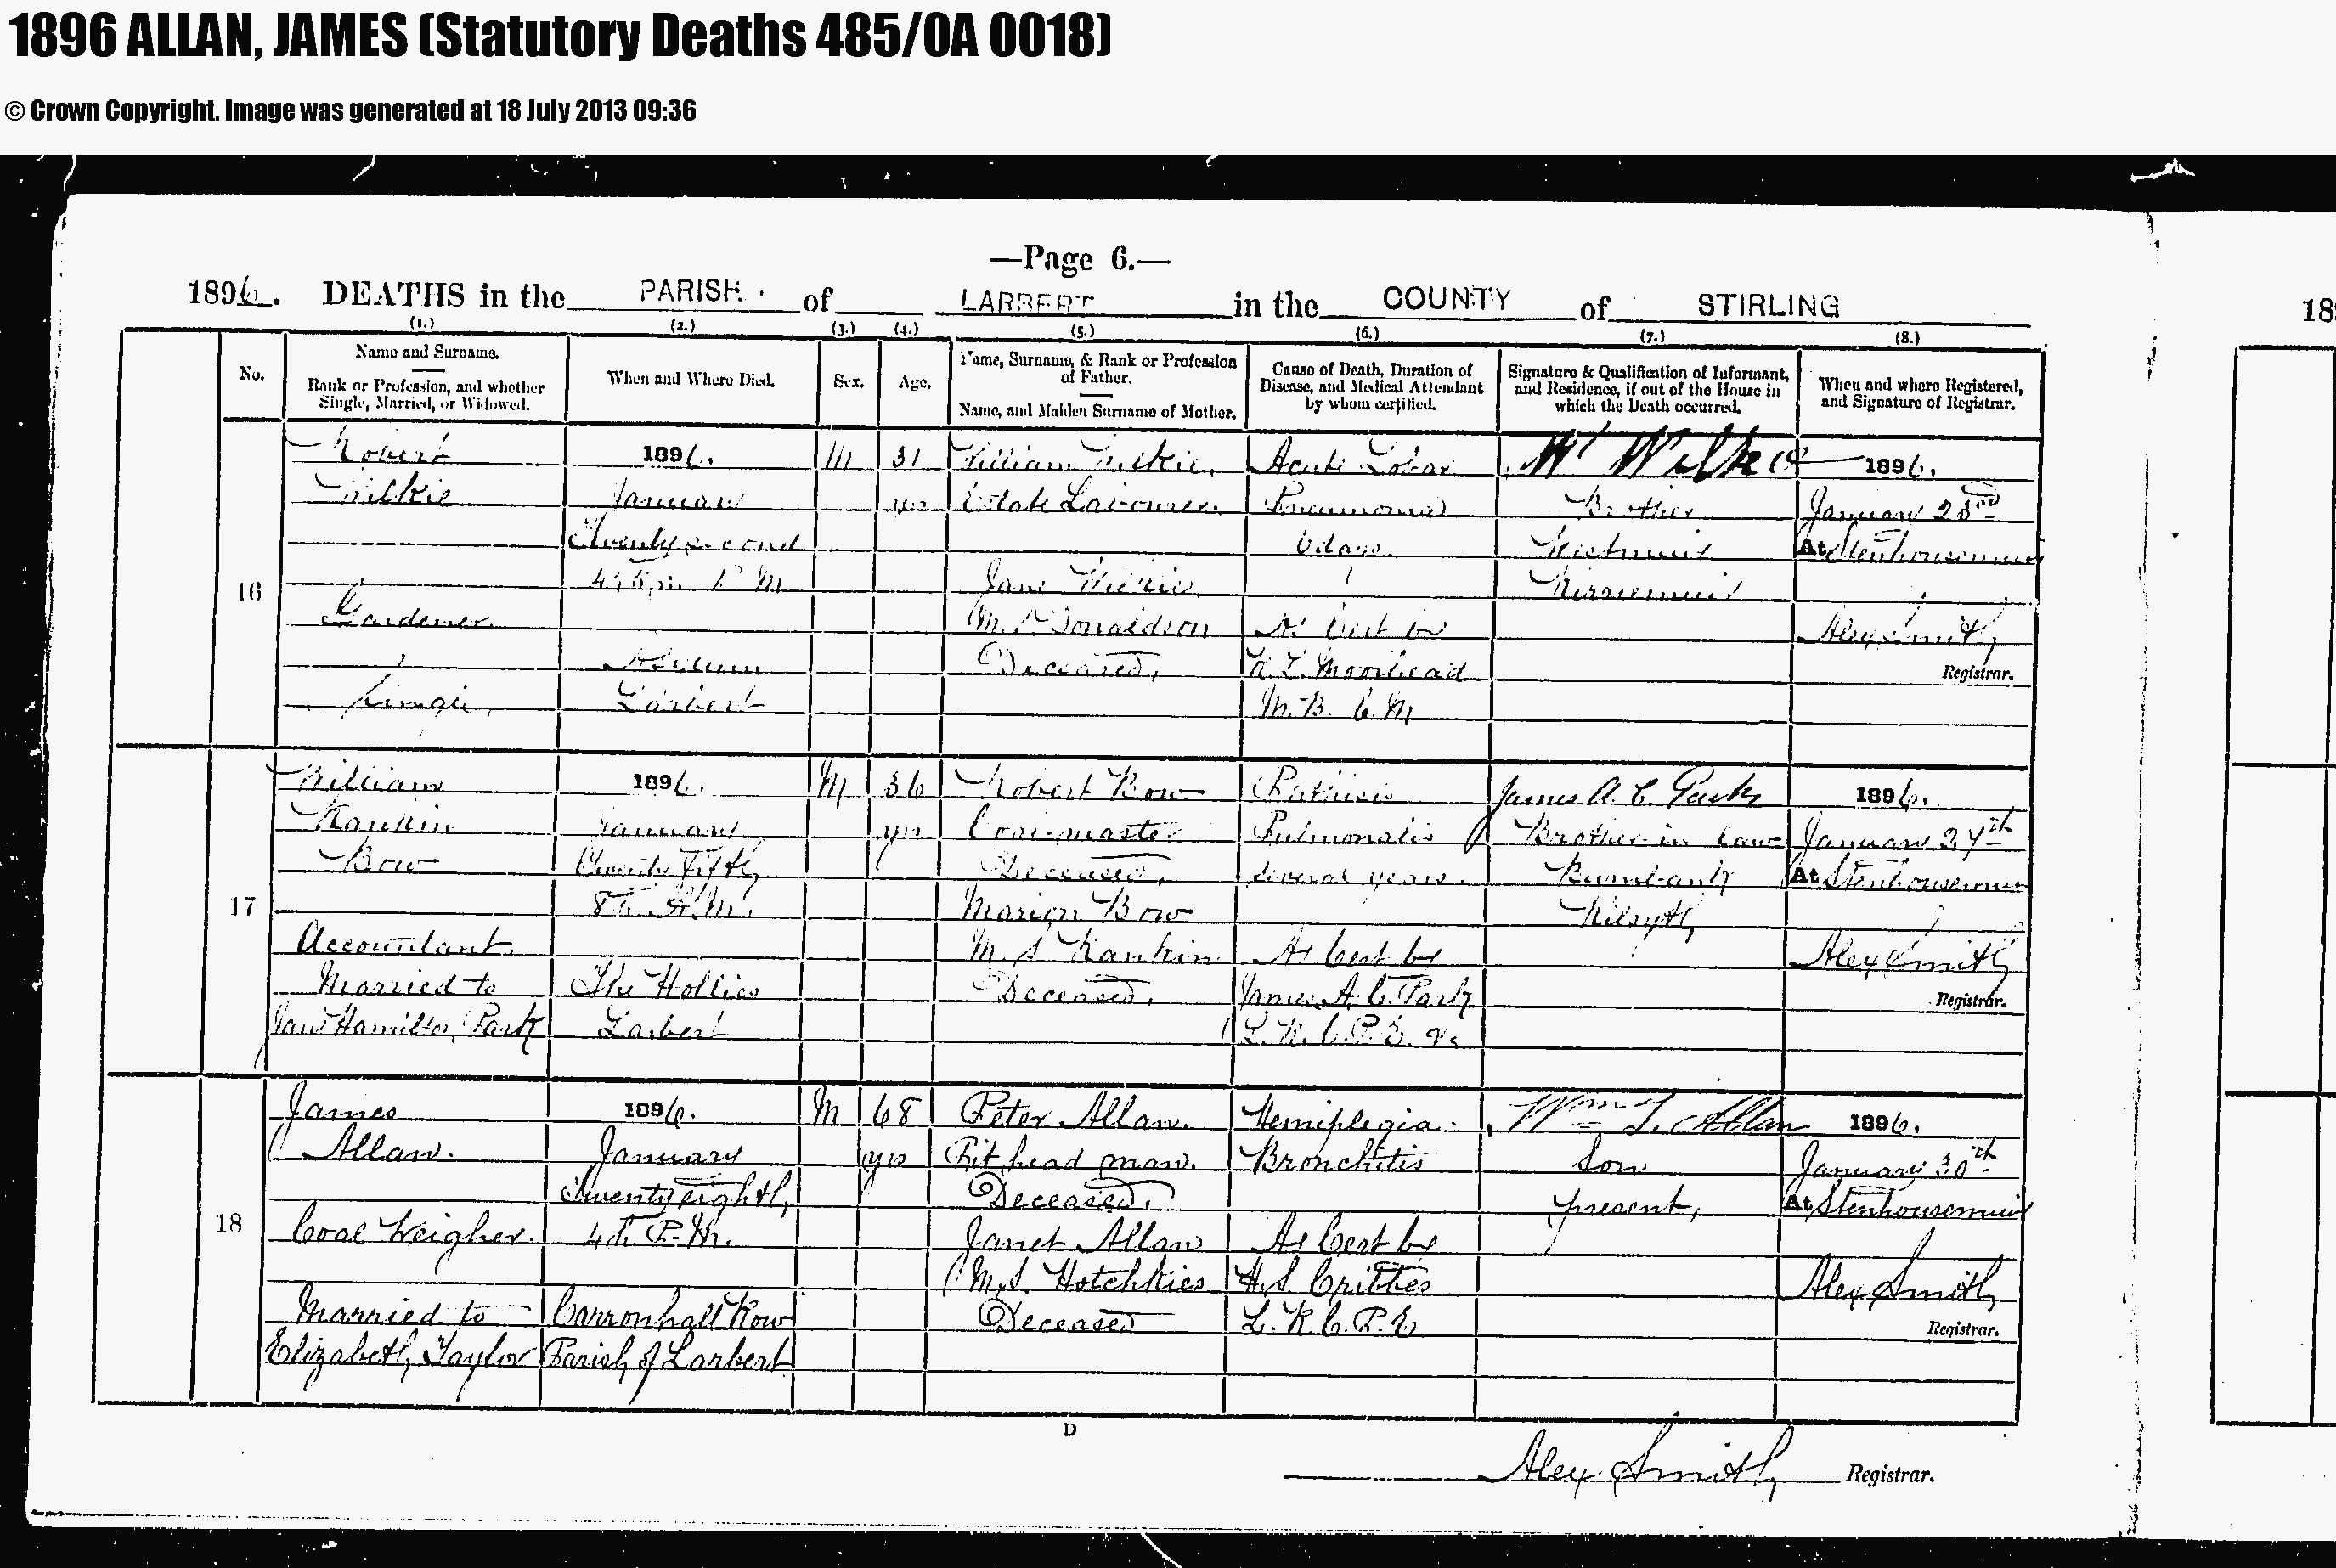 1896 ALLAN, JAMES (Statutory Deaths 485/0A 0018)
© Crown Copyright. Image was generated at 18 July 2013 09:36
—Page 6.—
1896. DEATHS in the PARISH of LARBERT in the COUNTY of STIRLING
(1.) (2.) (3.) (4.) (5.) (6.) (7.) (8.)
No.
Name and Surname.
Rank or Profession, and whether
Single, Married, or Widowed.
When and Where Died.
Sex.
Age.
Name, Surname, & Rank or Profession
of Father.
Name, and Maiden Surname of Mother.
Cause of Death, Duration of
Disease, and Medical Attendant
by whom certified.
Signature & Qualification of Informant,
and Residence, if out of the House in
which the Death occurred.
When and where Registered,
and Signature of Registrar.
16
Robert
Wilkie
Gardener.
Single,
1896.
January
Twenty second
P.M.
Asylum
Larbert
M
31
yrs
William Wilkie,
Estate Labourer.
Jane Wilkie
M.S. Donaldson
Deceased,
Acute Lobar
Pneumonia
6 days.
As Cert by
A. L. Moorhead
M.B. C.M
Wm Wilkie
Brother
Kirriemuir
1896.
January 23rd
At Stenhousemuir
Alex Smith
Registrar.
17
William
Rankin
Bow
Accountant.
Married to
Jane Hamilton Park
1896.
January
Twenty Fifth
8h. A.M.
The Hollies
Larbert
M
36
yrs
Robert Bow
Coal-master
Deceased,
Marion Bow
M.S. Rankin
Deceased,
Phthisis
Pulmonalis
several years.
As Cert by
James A. C. Park
L.R.C.P.E. &c
James A. C. Park
Brother-in-law
Burnbank
Kilsyth
1896.
January 27th
At Stenhousemuir
Alex Smith
Registrar.
18
James
Allan.
Coal Weigher.
Married to
Elizabeth Taylor
1896.
January
Twenty eighth,
4h. P.M.
Carronhall Row
Parish of Larbert
M
68
yrs
Peter Allan.
Pit head man.
Deceased,
Janet Allan
M.S. Hotchkies
Deceased
Hemiplegia.
Bronchitis
As Cert by
L.R.C.P.E.
Wm T. Allan
Son
present,
1896.
January 30th
At Stenhousemuir
Alex Smith
Registrar.
D
Alex Smith Registrar.